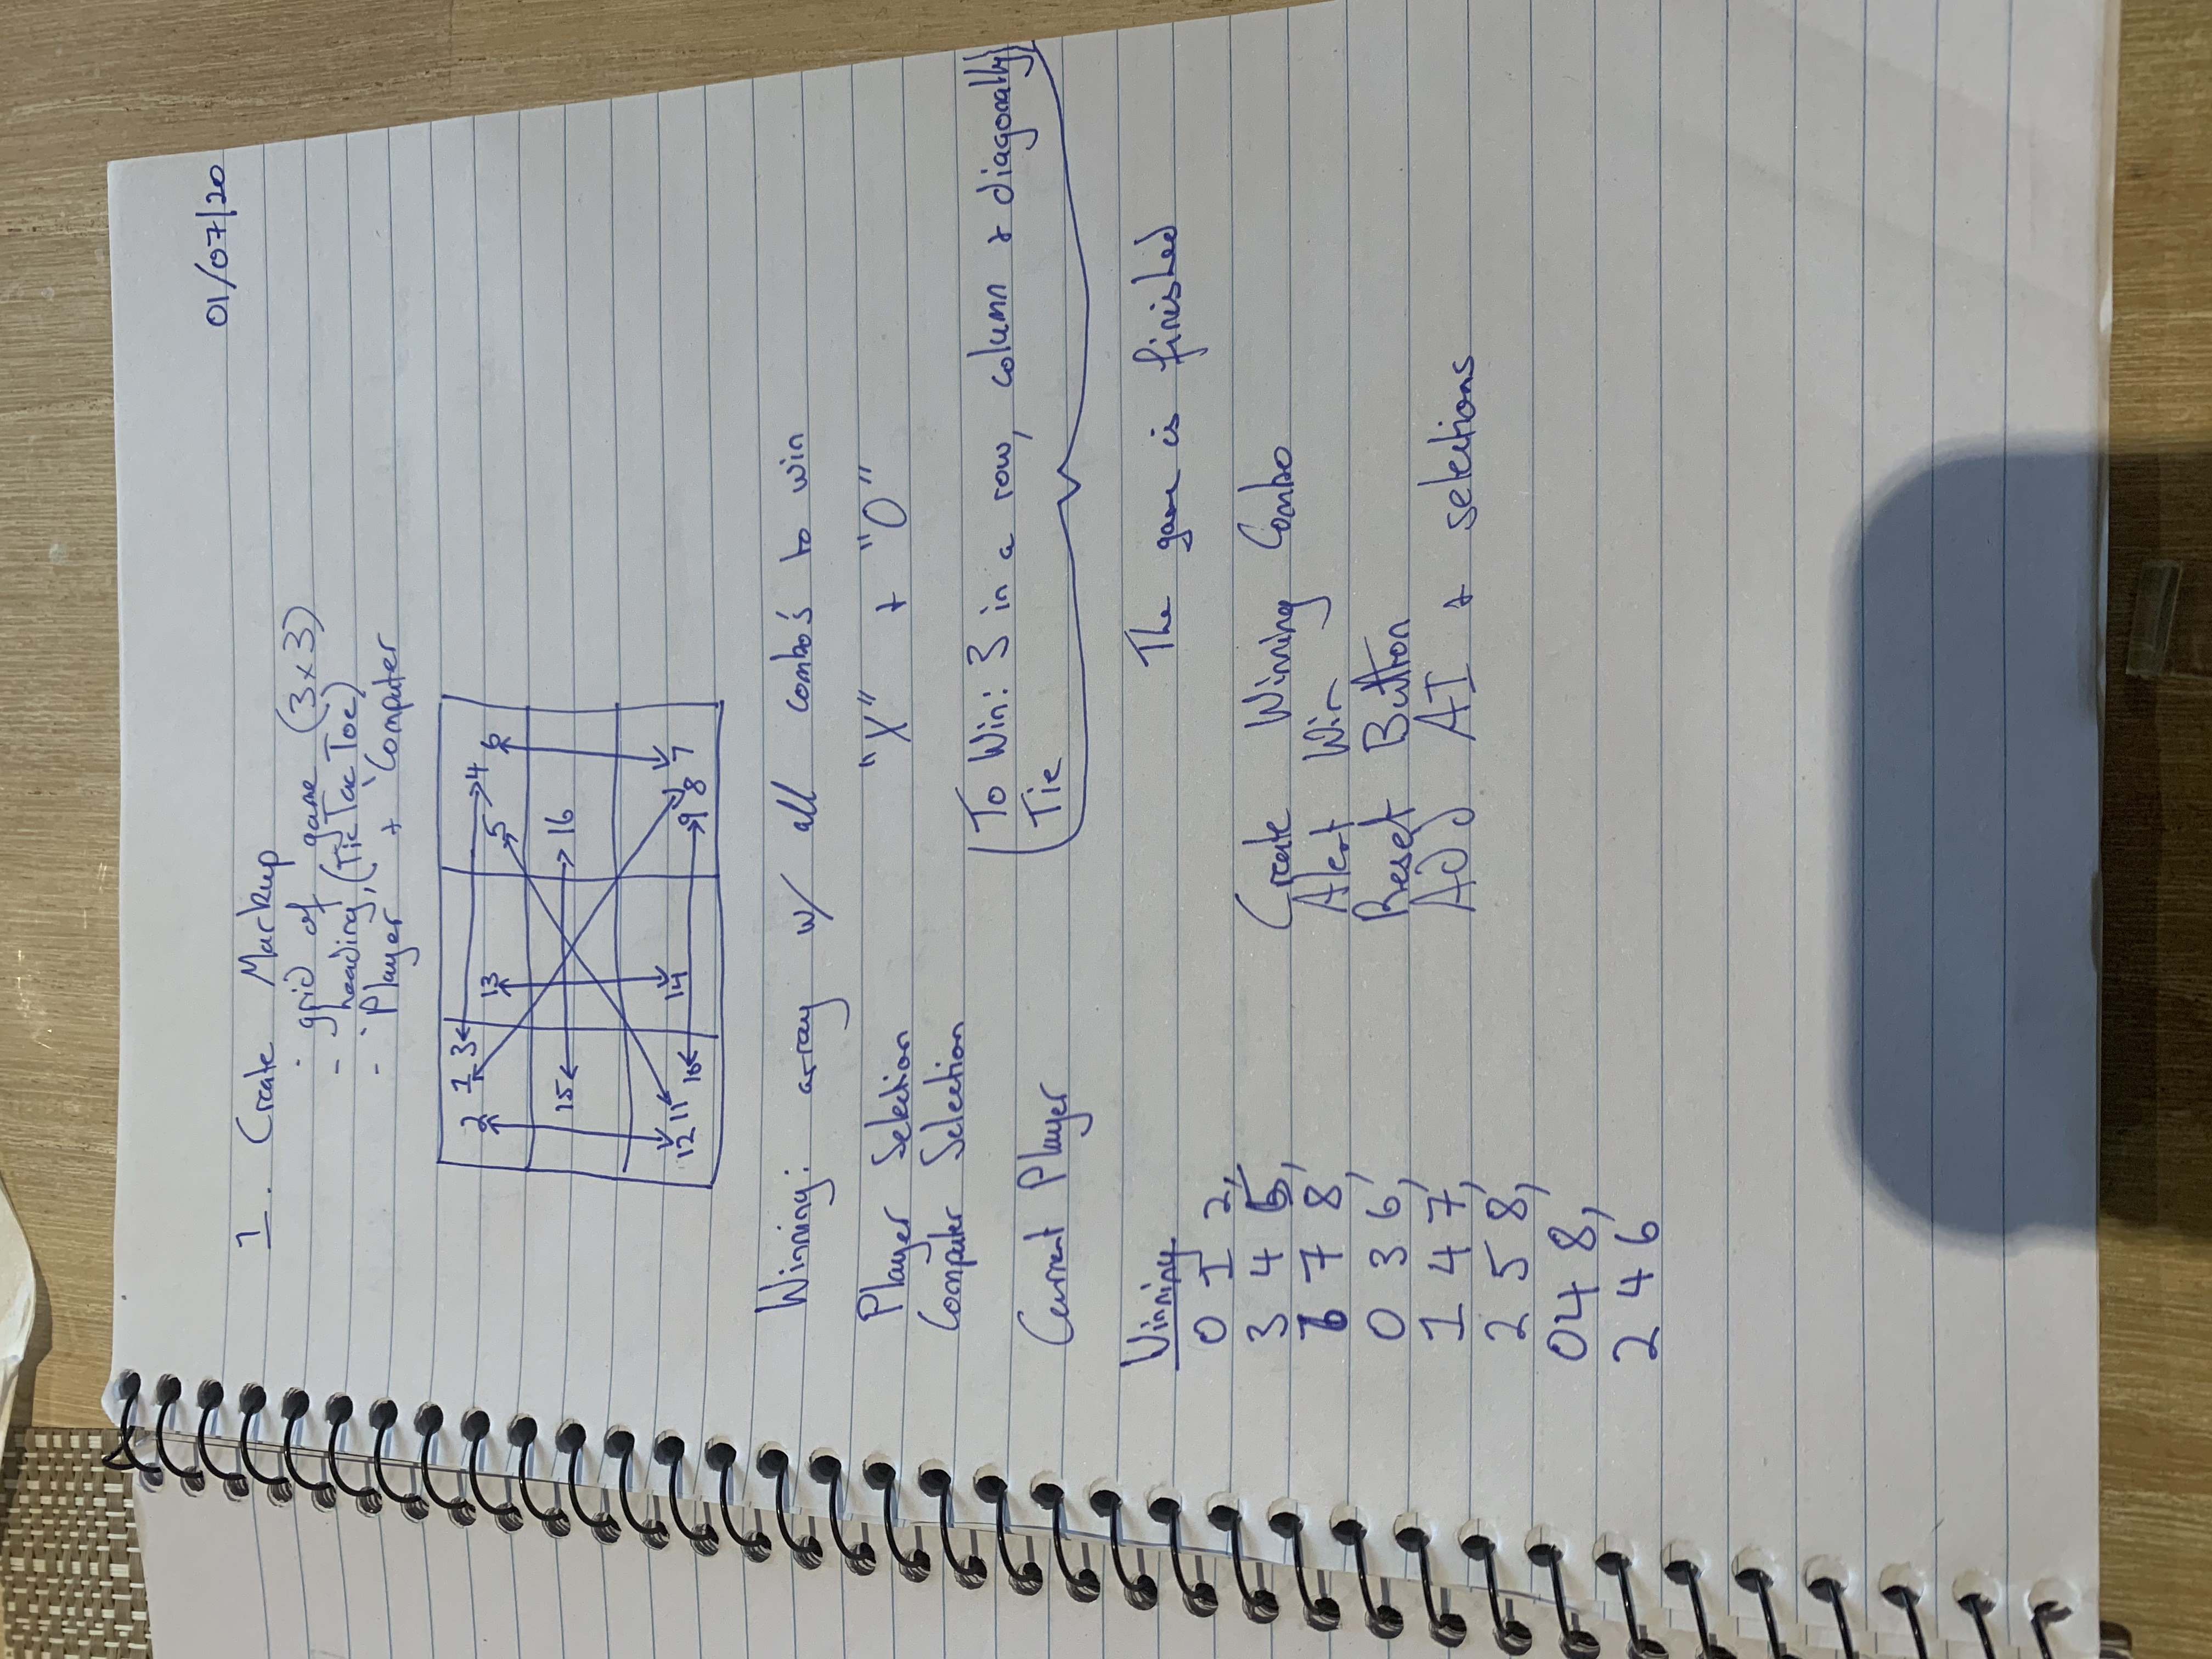 01/07/20
1. Create Markup
- grid of game (3x3)
- heading, (Tic Tac Toe)
- 'Player' + 'Computer
2 1 3 4
13 5 6
15 16
12 11 10 14 9 8 7
Winning: array w/ all combo's to win
Player Selection "X" + "O"
Computer Selection
To Win: 3 in a row, column + diagonally
Current Player Tie
Winning The game is finished
0 1 2,
3 4 5, Create Winning Combo
6 7 8, Alert Win
0 3 6, Reset Button
1 4 7, Add AI + selections
2 5 8,
04 8,
2 4 6